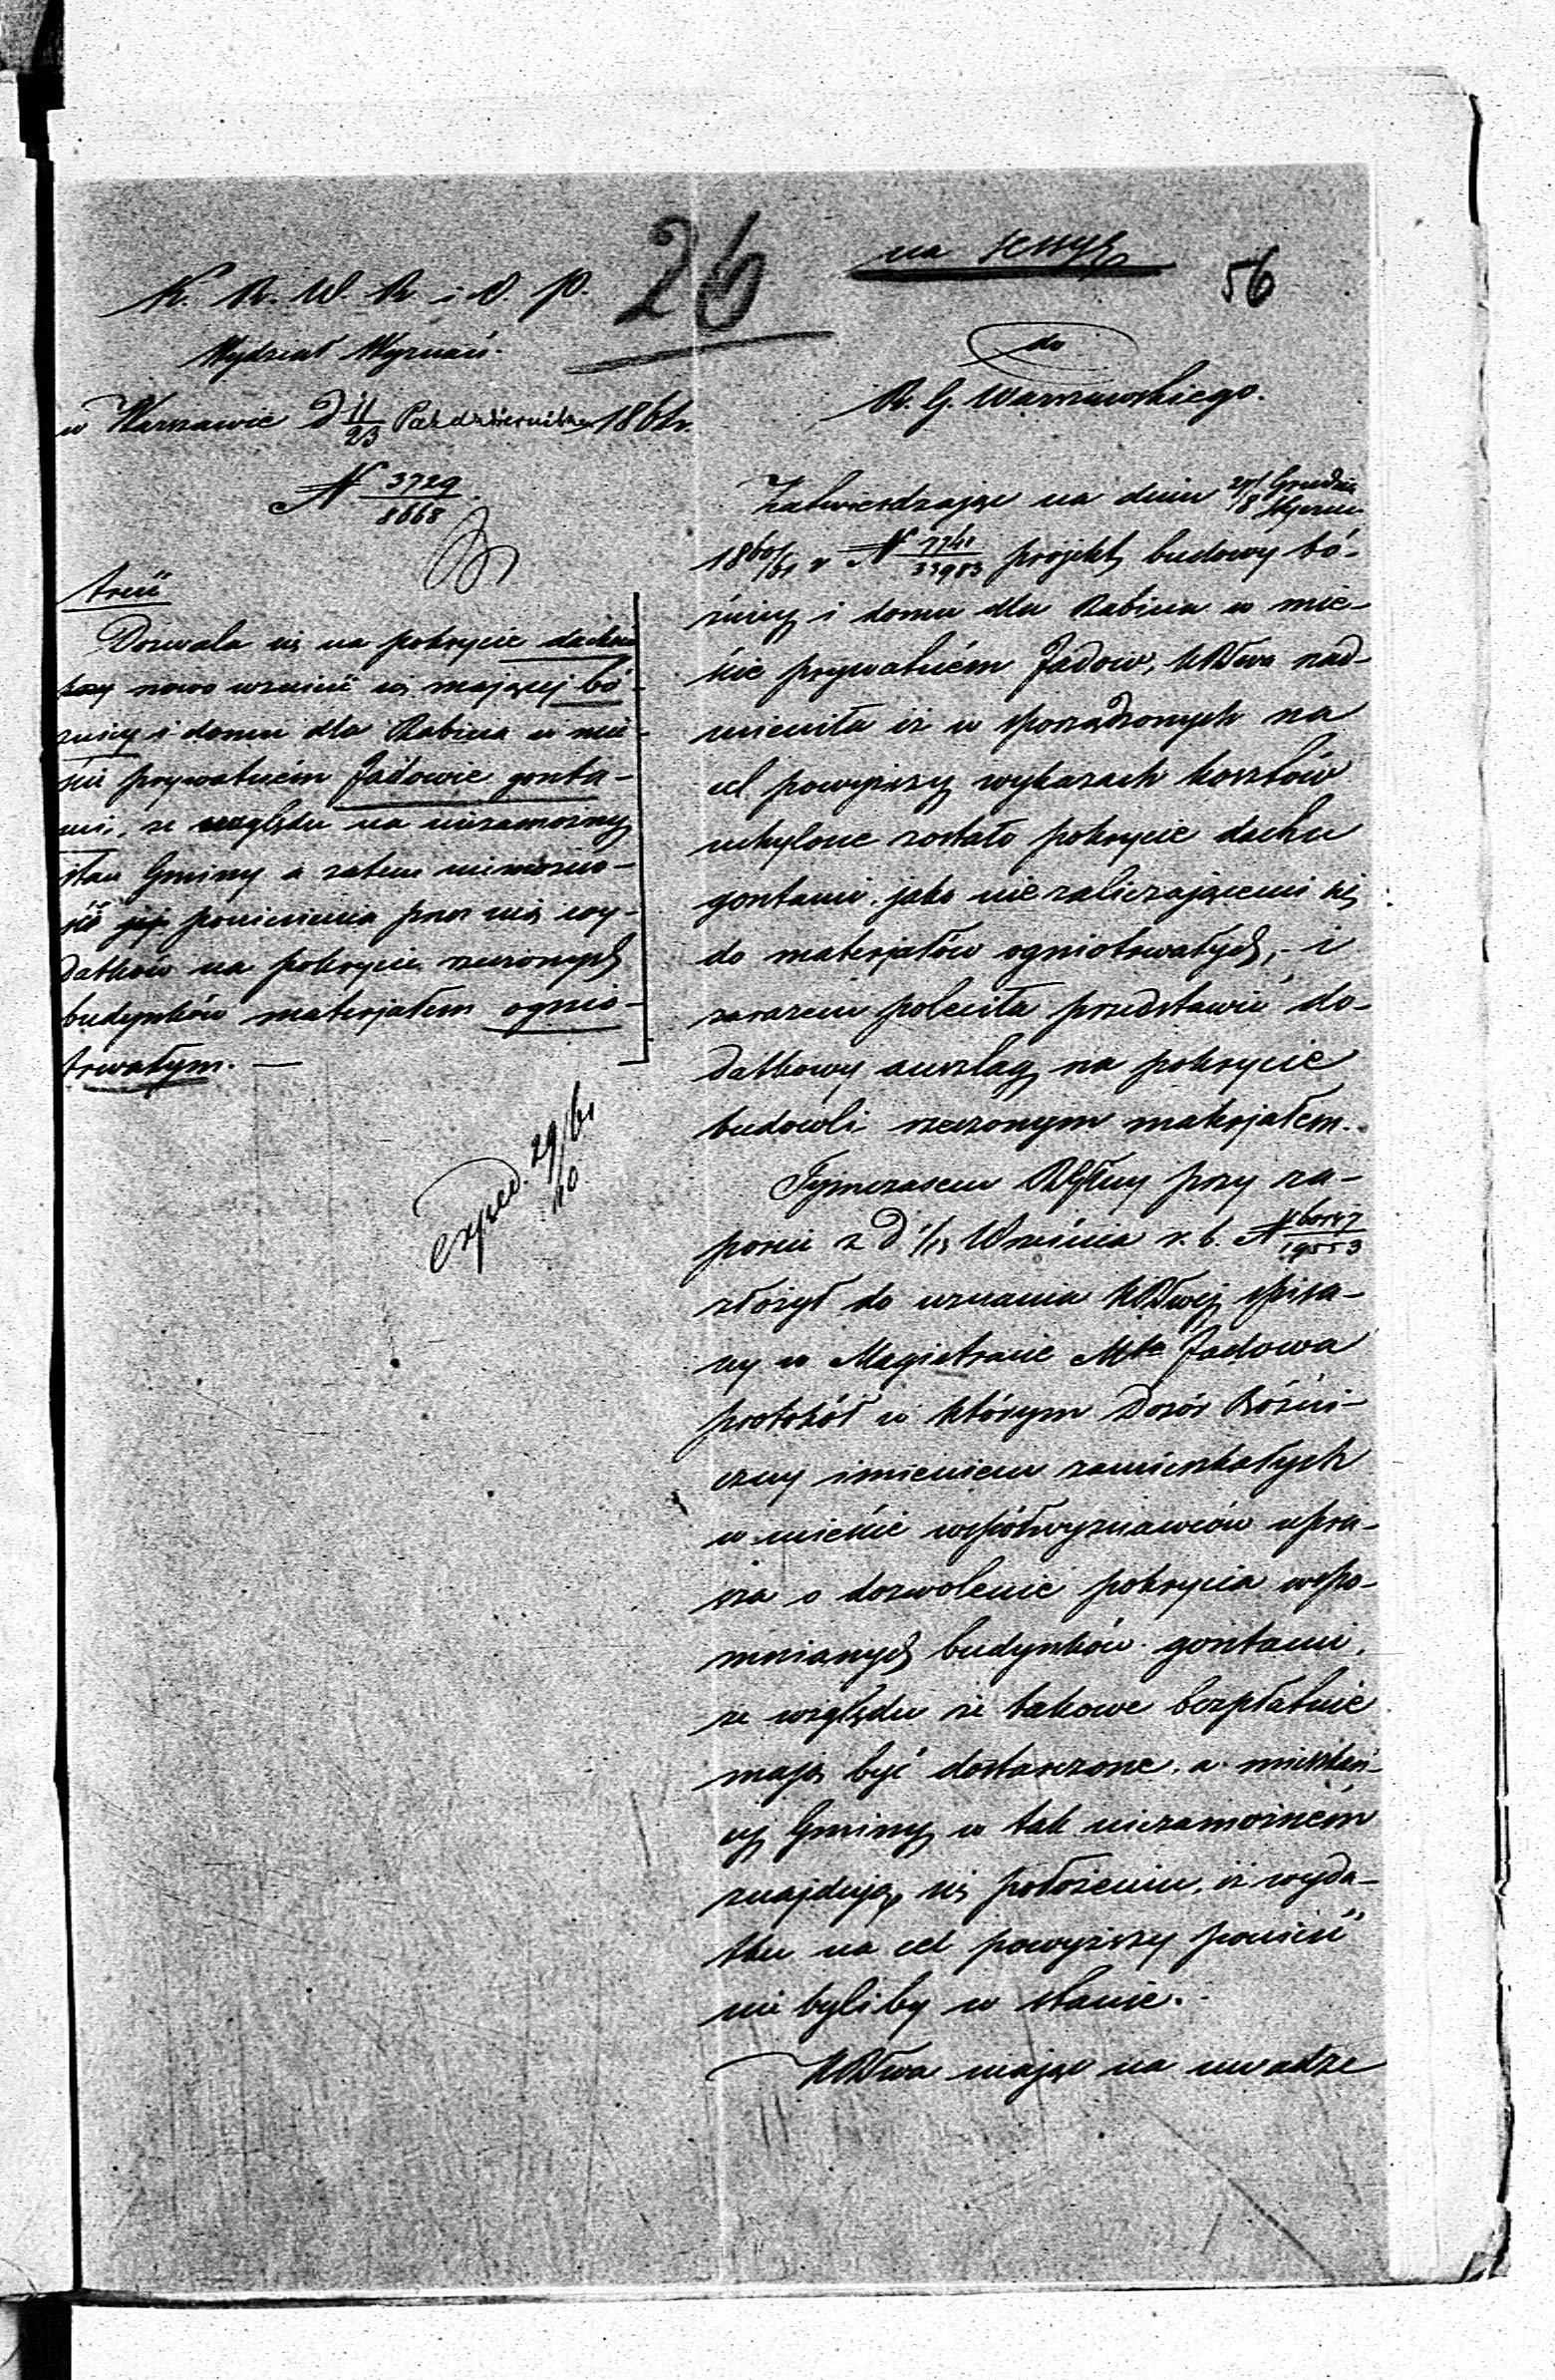 26
na sessyę
56
K. R. W. R. i O. P.
Wydział Wyznań.
w Warszawie d 11/23 Października 1861 r.
N 3729/8668
treść
Dozwala się na pokrycie dachu
przy nowo wznieść się mającej bó-
żnicy i domu dla Rabina w mie-
ście prywatném Jadowie gonta-
mi, ze względu na niezamożny
stan Gminy a zatem niemożno-
ść jej poniesienia przez nią wy-
datków na pokrycie rzeczonych
budynków materjałem ognio-
trwałym. —
exped. 29/10 61
do
R. G. Warszawskiego.
Zatwierdzając na dniu 27/8 Grudnia Stycznia
1860/61 r N 7741/33983 projekt budowy bó-
żnicy i domu dla Rabina w mie-
ście prywatném Jadów, KRwa nad-
mieniła iż w sporządzonych na
cel powyższy wykazach kosztów
uchylone zostało pokrycie dachu
gontami, jako niezaliczającemi się
do materjałów ogniotrwałych, - i
zarazem poleciła przedstawić do-
datkowy anszlag na pokrycie
budowli rzeczonym materjałem.
Tymczasem RGlny przy ra-
porcie z d 1/13 Września r. b. N 19553
złożył do uznania KRwej spisa-
ny w Magistracie Mta Jadowa
protokół w którym Dozór Bóżni-
czny imieniem zamieszkałych
w mieście współwyznawców upra-
sza o dozwolenie pokrycia wspo-
mnianych budynków gontami,
ze względu że takowe bezpłatnie
mają być dostarczone, a mieszkań-
cy Gminy w tak niezamożném
znajdują się położeniu, iż wyda-
tku na cel powyższy ponieść
nie byliby w stanie.
KRwa mając na uwadze